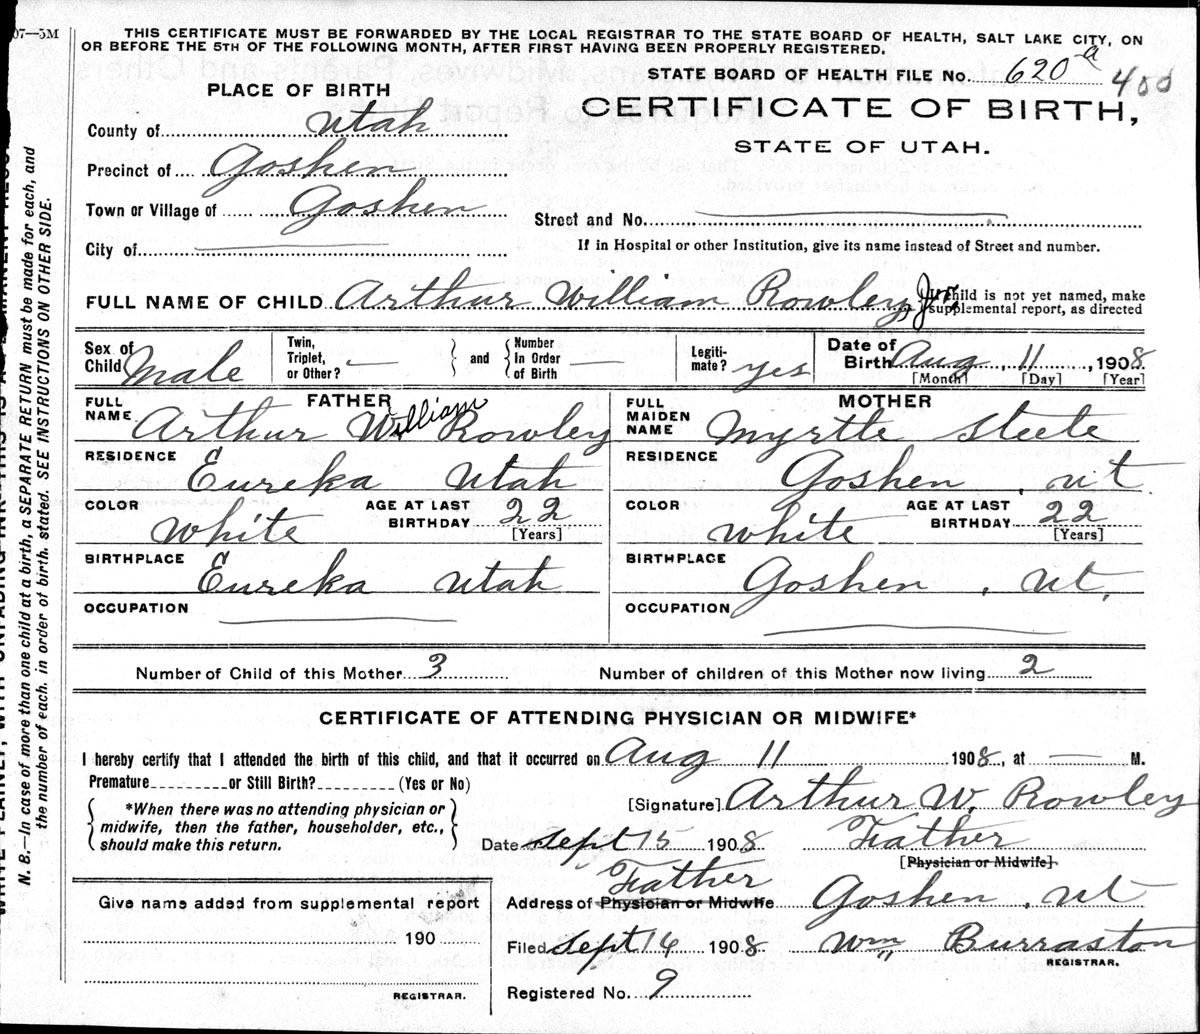 07—5M
THIS CERTIFICATE MUST BE FORWARDED BY THE LOCAL REGISTRAR TO THE STATE BOARD OF HEALTH, SALT LAKE CITY, ON
OR BEFORE THE 5TH OF THE FOLLOWING MONTH, AFTER FIRST HAVING BEEN PROPERLY REGISTERED.
STATE BOARD OF HEALTH FILE No. 620-a 400
PLACE OF BIRTH
CERTIFICATE OF BIRTH,
STATE OF UTAH.
County of Utah
Precinct of Goshen
Town or Village of Goshen
Street and No.
City of
If in Hospital or other Institution, give its name instead of Street and number.
FULL NAME OF CHILD Arthur William Rowley, Jr. child is not yet named, make
supplemental report, as directed
Sex of Child Male
Twin, Triplet, or Other? — and Number In Order of Birth
Legitimate? yes
Date of Birth Aug 11, 1908
[Month] [Day] [Year]
FATHER
FULL NAME Arthur William Rowley
RESIDENCE Eureka Utah
COLOR White AGE AT LAST BIRTHDAY 22
[Years]
BIRTHPLACE Eureka Utah
OCCUPATION
MOTHER
FULL MAIDEN NAME Myrtle Steele
RESIDENCE Goshen, Ut.
COLOR White AGE AT LAST BIRTHDAY 22
[Years]
BIRTHPLACE Goshen, Ut.
OCCUPATION
Number of Child of this Mother 3
Number of children of this Mother now living 2
CERTIFICATE OF ATTENDING PHYSICIAN OR MIDWIFE*
I hereby certify that I attended the birth of this child, and that it occurred on Aug 11 1908, at — M.
Premature or Still Birth? (Yes or No)
*When there was no attending physician or
midwife, then the father, householder, etc.,
should make this return.
[Signature] Arthur W. Rowley
Date Sept 15 1908 Father
[Physician or Midwife]
Father
Address of Physician or Midwife Goshen, Ut
Filed Sept 16 1908 Wm Burraston
REGISTRAR.
Registered No. 9
Give name added from supplemental report
190
REGISTRAR.
N. B.—In case of more than one child at a birth, a SEPARATE RETURN must be made for each, and
the number of each, in order of birth, stated. SEE INSTRUCTIONS ON OTHER SIDE.